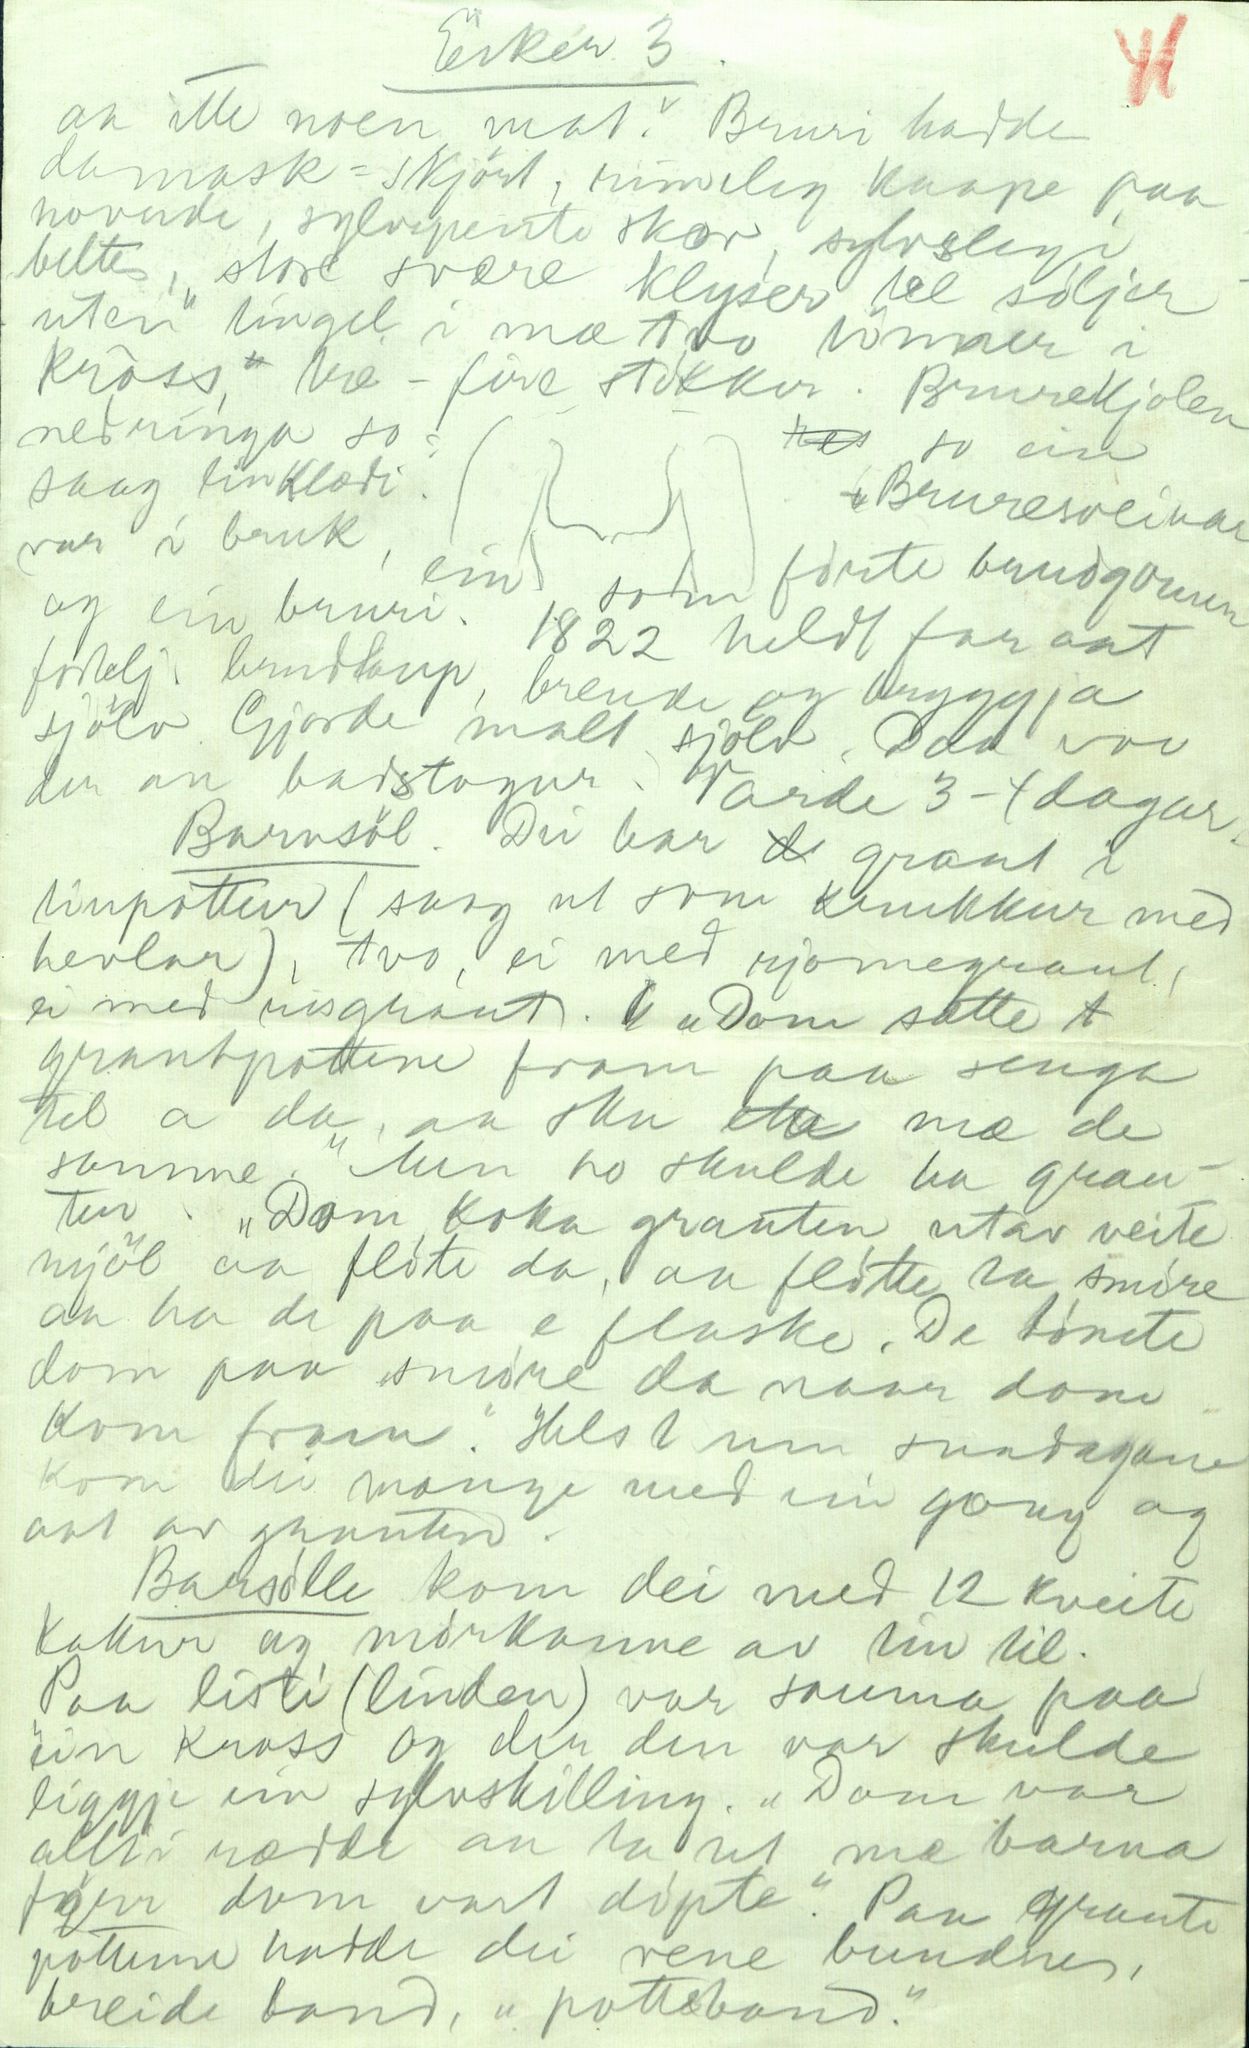 Esker 3.
aa itte noen mat." Bruri hadde
damask=skjört, rimeleg kaape paa
hovude, sylvspente skor, sylvslegi
belte, store svære klyser til söljer
uten" lingel i mæ tvo tömmer i
kröss," tre - fire stökker. Brurekjolen
nedringa so
so ein
saag linklædi.
"Bruresveinar
var i bruk, ein som förte brudgomen
og ein bruri. 1822 heldt far aat
brudlaup, brende og bryggja
sjölv. Gjorde malt sjölv. Daa var
der an badstogur. Varde 3-4 dagar.
Barnsöl. Dei bar graut i
tinpottur (saag ut som krukkur med
hevlar), tvo, ei med rjomegraut,
ei med risgraut. "Dom sette
grautpottene fram paa senga
tel a da, aa sku eta mæ de
samme." Men ho skulde ha grau-
ten. "Dom koka grauten utav veite
mjöl aa flöte da, aa flötte ta smöre
aa ha de paa e flaske. De tömte
dom paa smöre da naar dom
kom fram." Helst um sundagane
kom dei mange med ein gong og
aat av grauten.
Barsölle kom dei med 12 kveite
kakur og mörkanne av tin til.
Paa listi (linden) var sauma paa
ein kross og der den var skulde
liggje ein sylvskilling. "Dom var
allti rædde aa ta ut mæ barna
förr dom vart döpte." Paa graute
pottene hadde dei rene bundner,
breide band, "potteband."